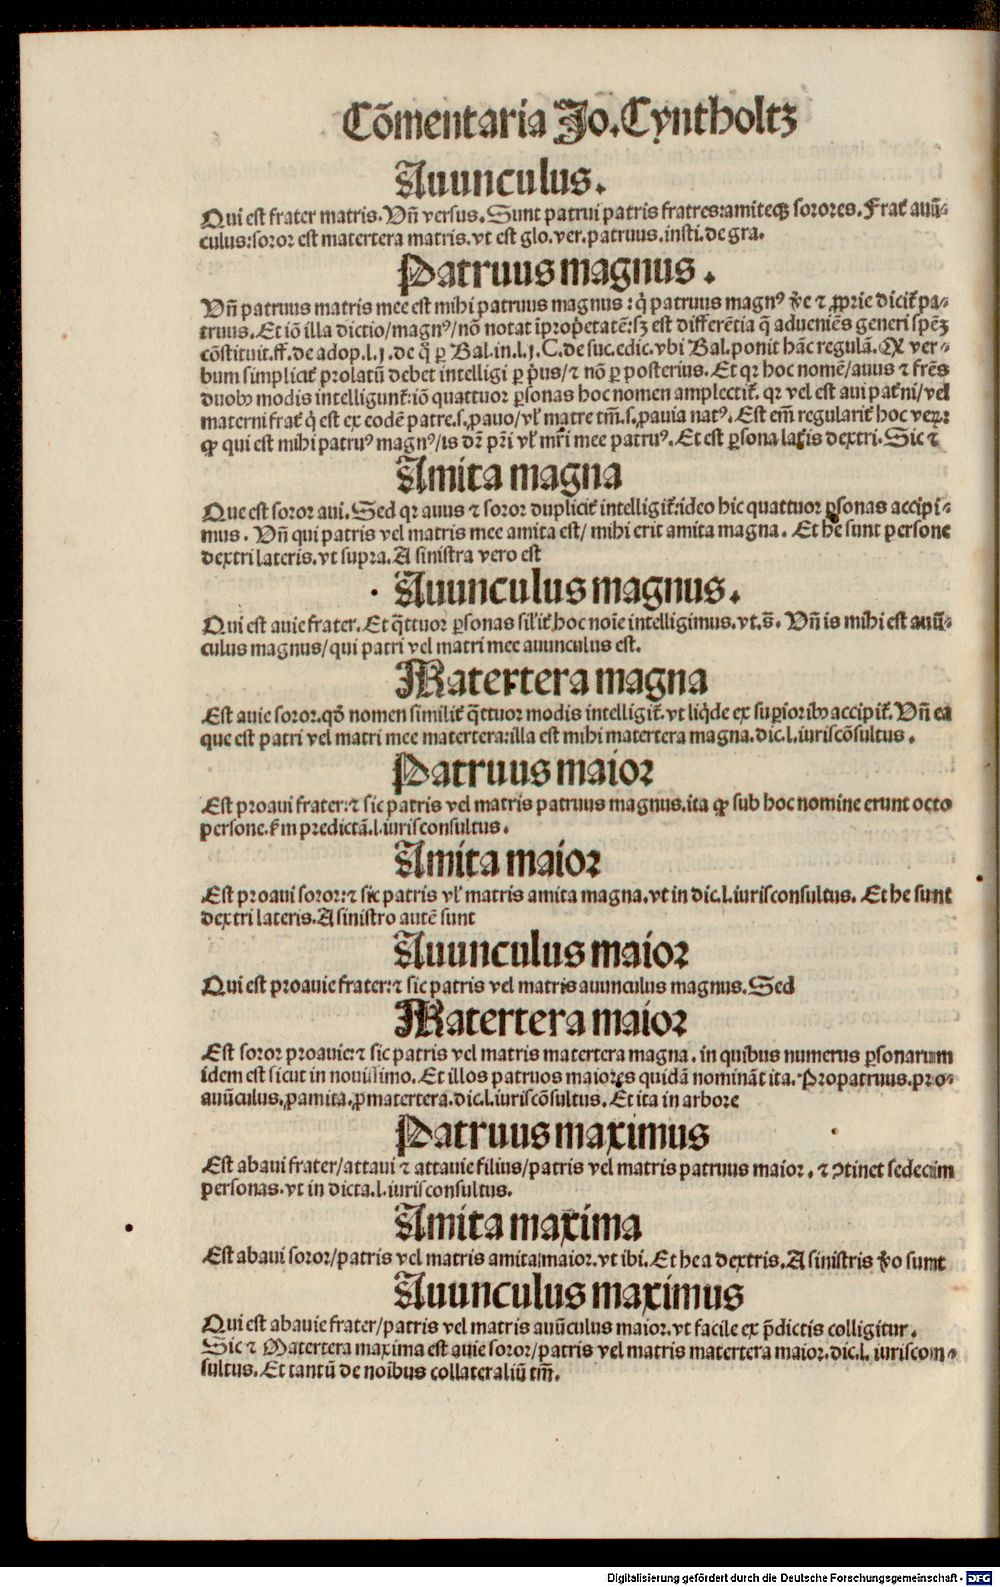 Cōmentaria Jo. Cyntholtz
Auunculus.
Qui est frater matris. Vñ versus. Sunt patrui patris fratres: amiteqꝫ sorores. Frat᷑ auū-
culus: soror est matertera matris. vt est glo. ver. patruus. insti. de gra.
Patruus magnus.
Vñ patruus matris mee est mihi patruus magnus: q̇ patruus magnꝰ v̓e ⁊ ꝓprie dicit᷑ pa-
truus. Et iō illa dictio/magnꝰ/nō notat īprop̓etatē: sꝫ est differētia q̄ adueniēs generi spēꝫ
cōstituit. ff. de adop. l. j. de q̄ ꝑ Bal. in. l. j. C. de suc. edic. vbi Bal. ponit hāc regulā. Ꝙ ver-
bum simplicit᷑ prolatū debet intelligi ꝑ p̓us/⁊ nō ꝑ posterius. Et qꝛ hoc nomē/auus ⁊ frēs
duobꝰ modis intelligunt᷑: iō quattuor ꝑsonas hoc nomen amplectit᷑. qꝛ vel est aui pat᷑ni/vel
materni frat᷑ q̇ est ex eodē patre. s. ꝓauo/vꝉ matre tm̄. s. ꝓauia natꝰ. Est em̄ regularit᷑ hoc veꝝ:
ꝙ qui est mihi patruꝰ magnꝰ/is dr̄ pr̄i vꝉ mr̄i mee patruꝰ. Et est ꝑsona lat᷑is dextri. Sic ⁊
Amita magna
Que est soror aui. Sed qꝛ auus ⁊ soror duplicit᷑ intelligit᷑: ideo hic quattuor ꝑsonas accipi-
mus. Vñ qui patris vel matris mee amita est/ mihi erit amita magna. Et he sunt persone
dextri lateris. vt supra. A sinistra vero est
Auunculus magnus.
Qui est auie frater. Et q̄ttuor ꝑsonas sil'it᷑ hoc noīe intelligimus. vt. s̄. Vñ is mihi est auū-
culus magnus/qui patri vel matri mee auunculus est.
Matertera magna
Est auie soror. qđ nomen similit᷑ q̄ttuor modis intelligit᷑. vt liq̇de ex suꝑioribꝰ accipit᷑. Vñ ea
que est patri vel matri mee matertera: illa est mihi matertera magna. dic. l. iuriscōsultus.
Patruus maior
Est proaui frater: ⁊ sic patris vel matris patruus magnus. ita ꝙ sub hoc nomine erunt octo
persone. ẜm predictā. l. iurisconsultus.
Amita maior
Est proaui soror: ⁊ sic patris vꝉ matris amita magna. vt in dic. l. iurisconsultus. Et he sunt
dextri lateris. A sinistro autē sunt
Auunculus maior
Qui est proauie frater: ⁊ sic patris vel matris auunculus magnus. Sed
Matertera maior
Est soror proauie: ⁊ sic patris vel matris matertera magna. in quibus numerus ꝑsonarum
idem est sicut in nouissimo. Et illos patruos maiores quidā nomināt ita. Propatruus. pro-
auūculus. ꝓamita. ꝓmatertera. dic. l. iuriscōsultus. Et ita in arbore
Patruus maximus
Est abaui frater/attaui ⁊ attauie filius/patris vel matris patruus maior. ⁊ ꝯtinet sedecim
personas. vt in dicta. l. iurisconsultus.
Amita maxima
Est abaui soror/patris vel matris amita maior. vt ibi. Et he a dextris. A sinistris v̓o sunt
Auunculus maximus
Qui est abauie frater/patris vel matris auūculus maior. vt facile ex p̄dictis colligitur.
Sic ⁊ Matertera maxima est auie soror/patris vel matris matertera maior. dic. l. iuriscon-
sultus. Et tantū de noībus collateraliū tm̄.
Digitalisierung gefördert durch die Deutsche Forschungsgemeinschaft - DFG